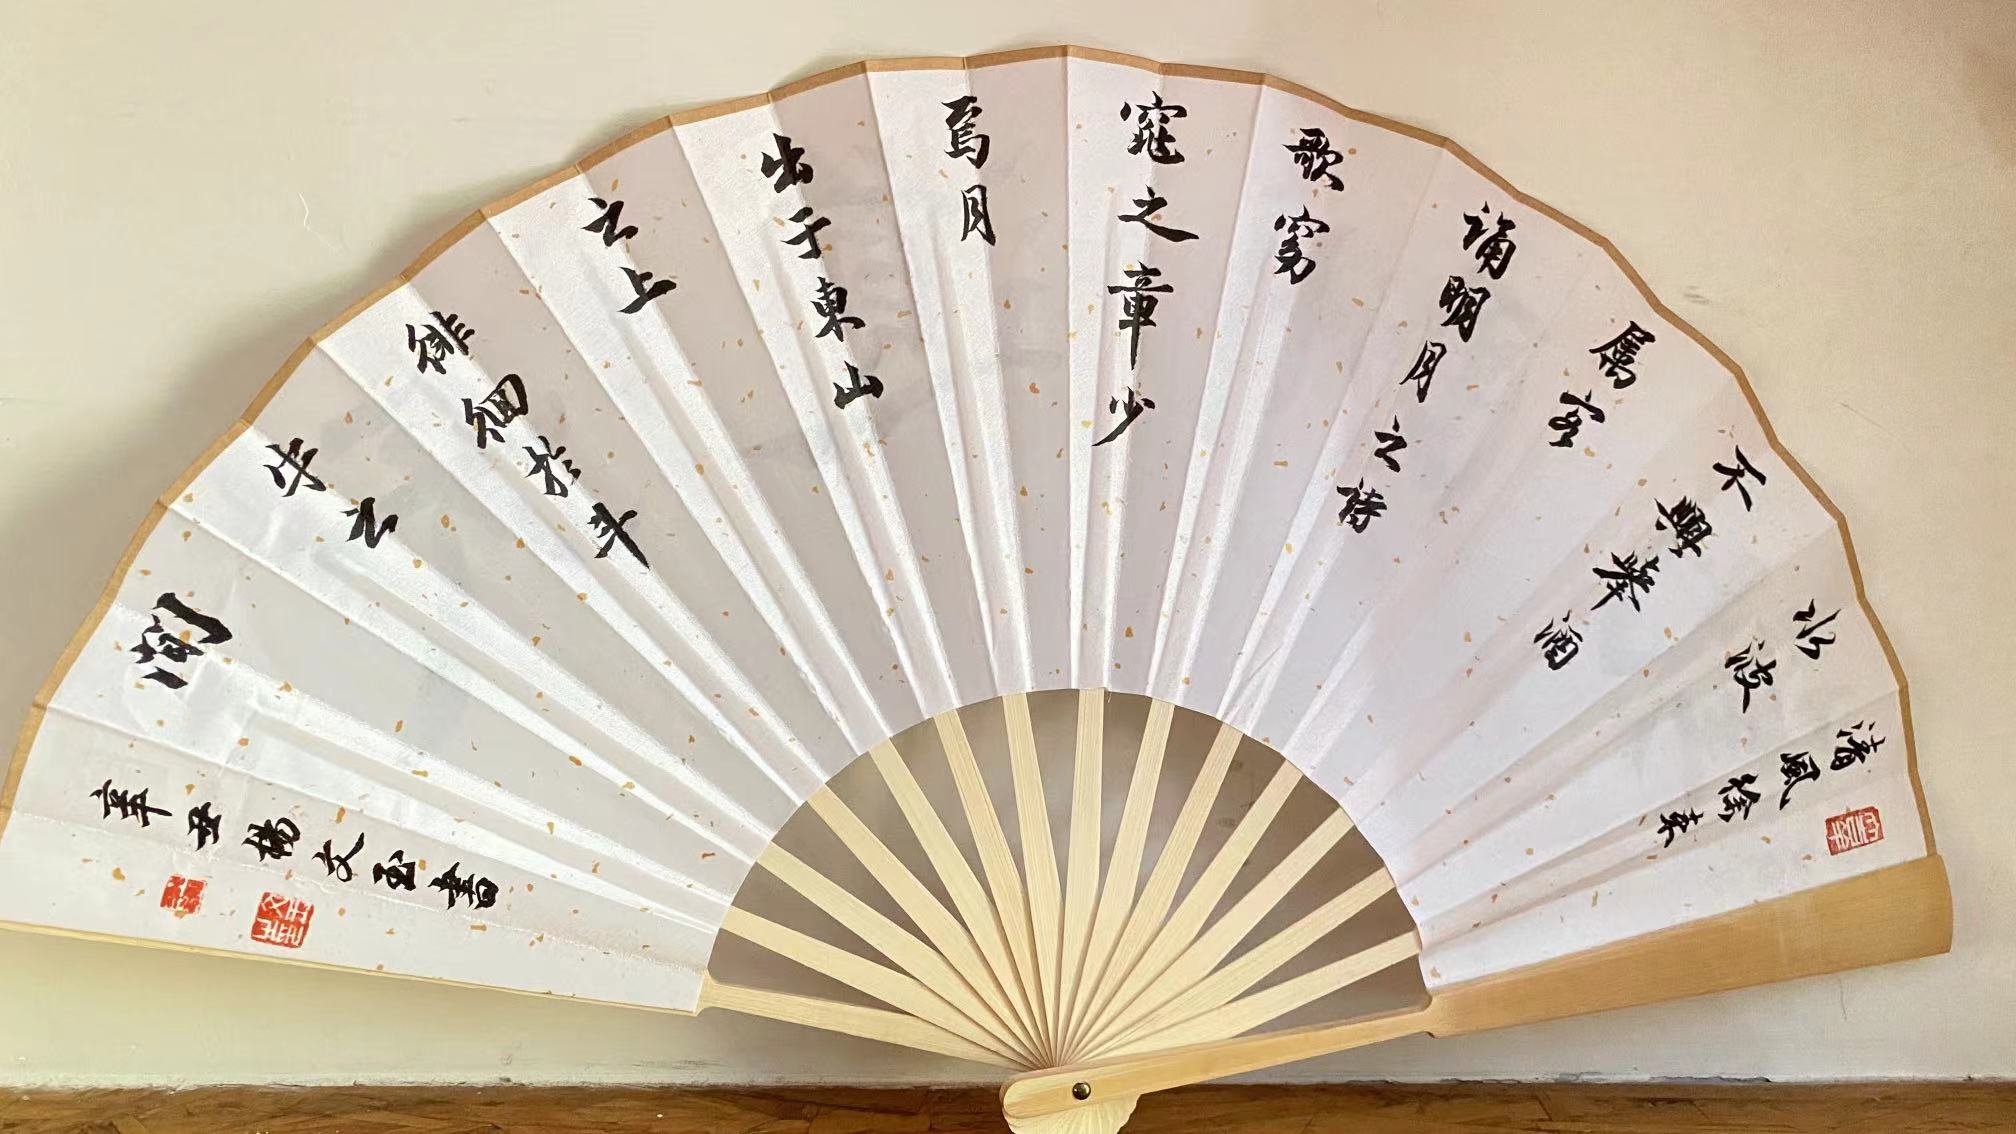 清風徐来
水波
不興舉酒
属客
誦明月之詩
歌窈
窕之章少
焉月
出于東山
之上
徘徊於斗
牛之
間
辛丑楊文玉書